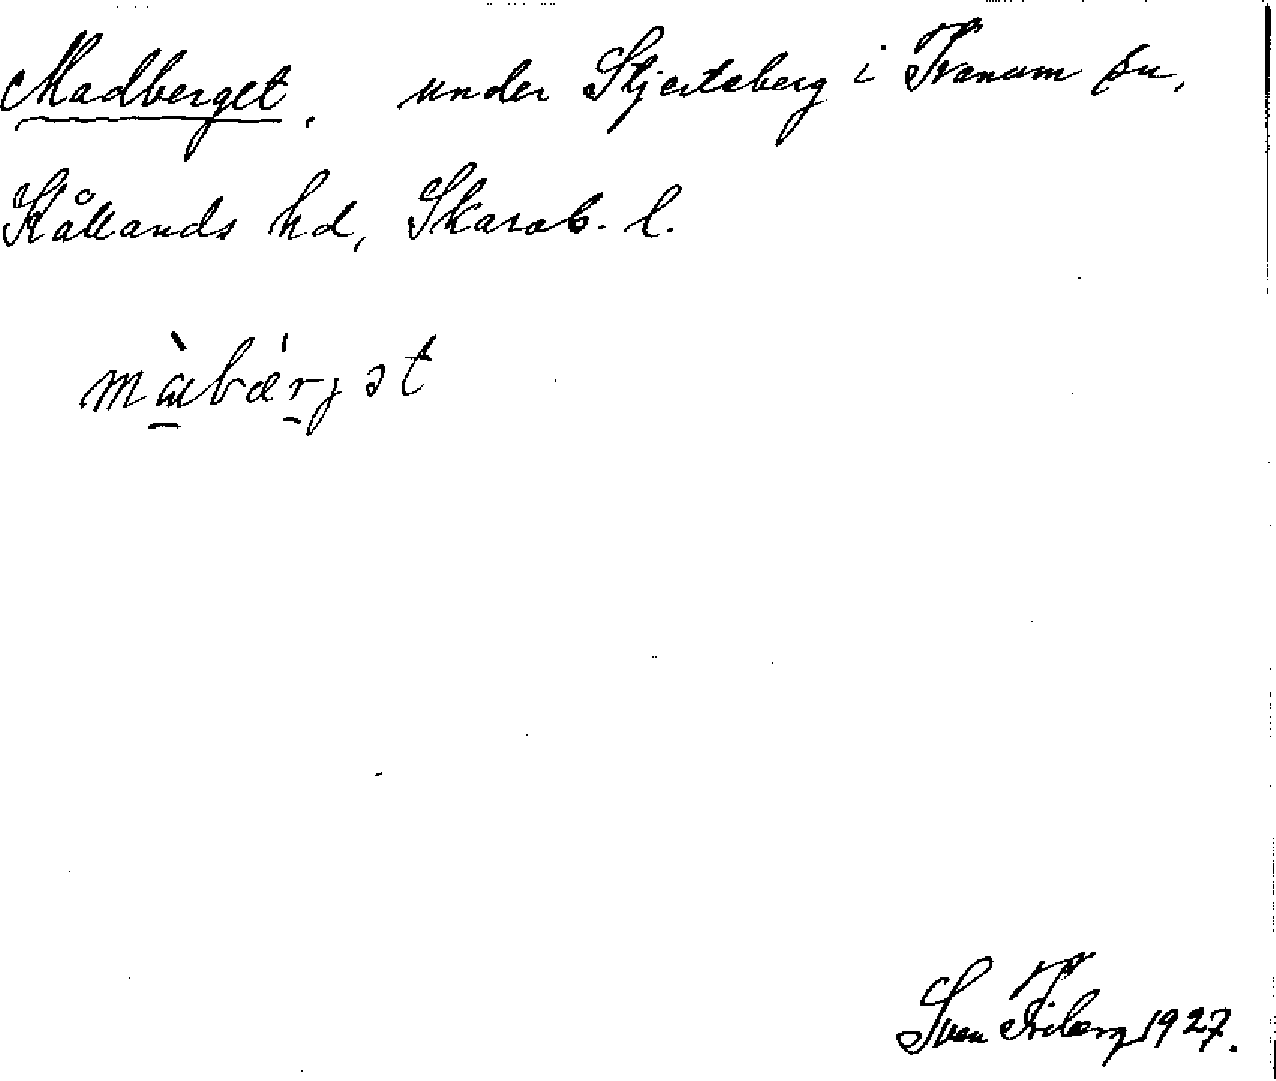 Madberget. under Stjertsberg i Tranum sn,
Kållands hd, Skarab. l.
màbǽrjət
Sven Friberg 1927.